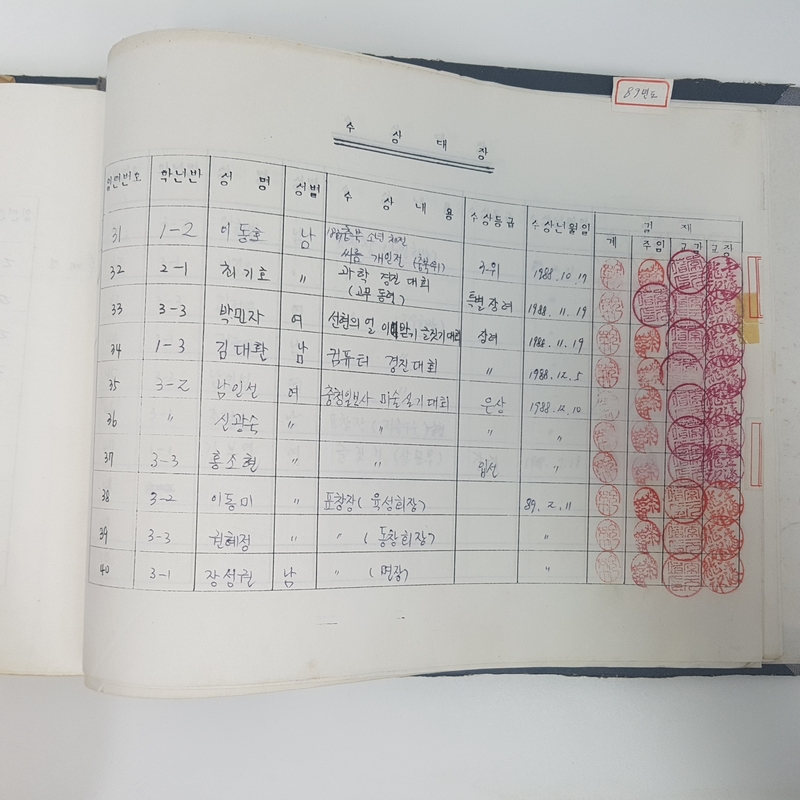 89년도
수 상 대 장
일련번호 학년반 성 명 성별 수 상 내 용 수상등급 수상년월일 결 재
계 주임 교감 교장
31 1-2 이동호 남 소년 체전
씨름 개인전 3위 1988.10.17
32 2-1 최기호 〃 과학 경진 대회
(고무 동력) 특별장려 1988.11.19
33 3-3 박민자 여 선현의 얼 이어받기 글짓기대회 장려 1988.11.19
34 1-3 김대환 남 컴퓨터 경진대회 〃 1988.12.5
35 3-2 남인선 여 충청일보사 미술실기대회 은상 1988.12.10
36 〃 신광숙 〃 〃 〃 〃
37 3-3 홍소현 〃 〃 입선 〃
38 3-2 이동미 〃 표창장 (육성회장) 89.2.11
39 3-3 권혜정 〃 〃 (동창회장) 〃
40 3-1 장성권 남 〃 (면장) 〃